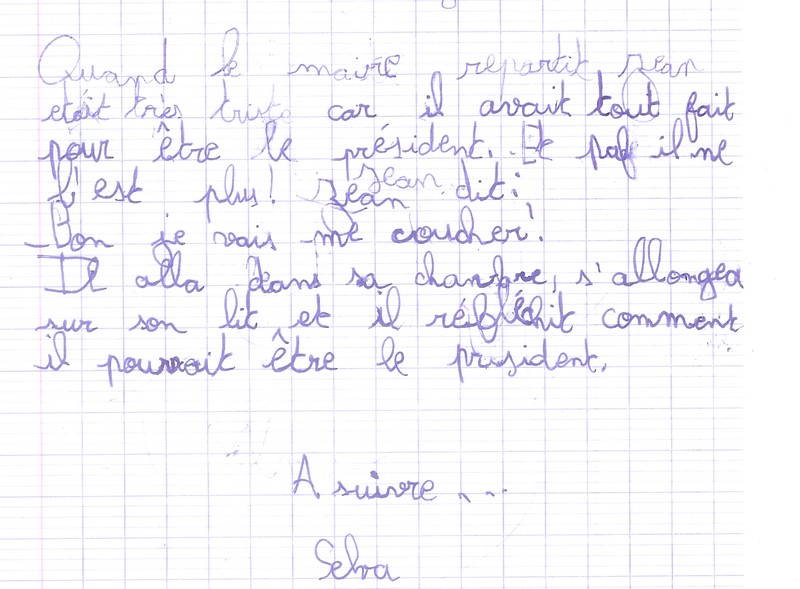 Quand le maire repartit Jean
etait très triste car il avait tout fait
pour être le président. Et paf il ne
l'est plus! Jean Jean dit:
_Bon je vais me coucher!
Il alla dans sa chanbre, s'allongea
sur son lit et il réfléchit comment
il pourrait être le president.
A suivre ...
Selva